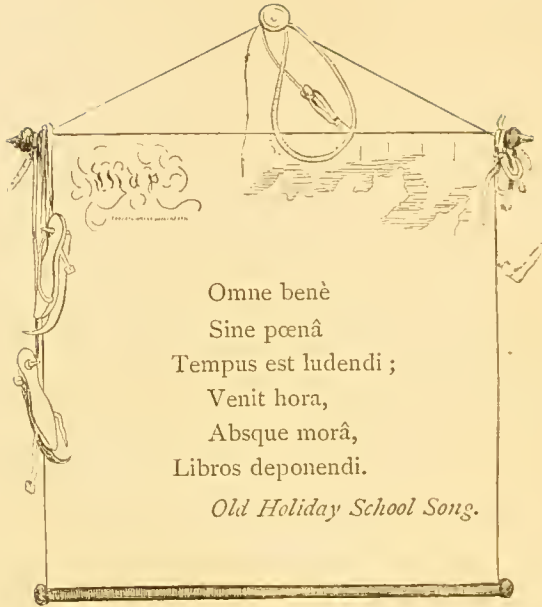 Map
Omne benè
Sine pœnâ
Tempus est ludendi ;
Venit hora,
Absque morâ,
Libros deponendi.
Old Holiday School Song.